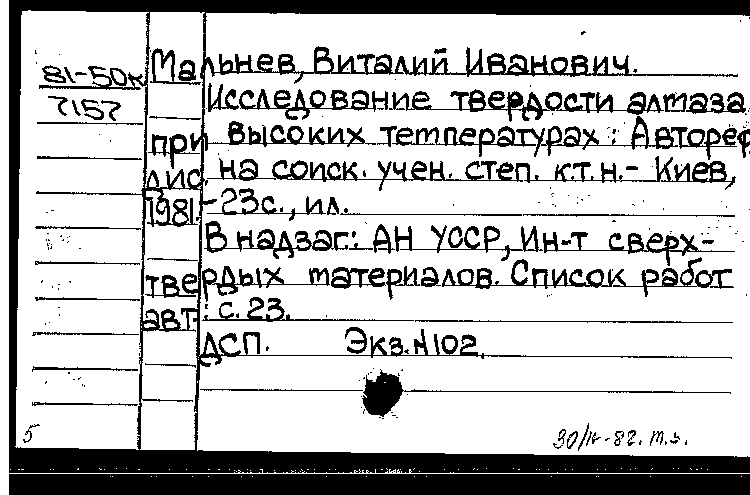 81-50к
7157
Мальнев, Виталий Иванович.
Исследование твердости алмаза
при высоких температурах : Автореф
дис. на соиск. учен. степ. к.т.н.- Киев,
1981.-23с., ил.
В надзаг.: АН УССР, Ин-т сверх-
твердых материалов. Список работ
авт.: с. 23.
ДСП. Экз.№102.
5
30/IV-82.